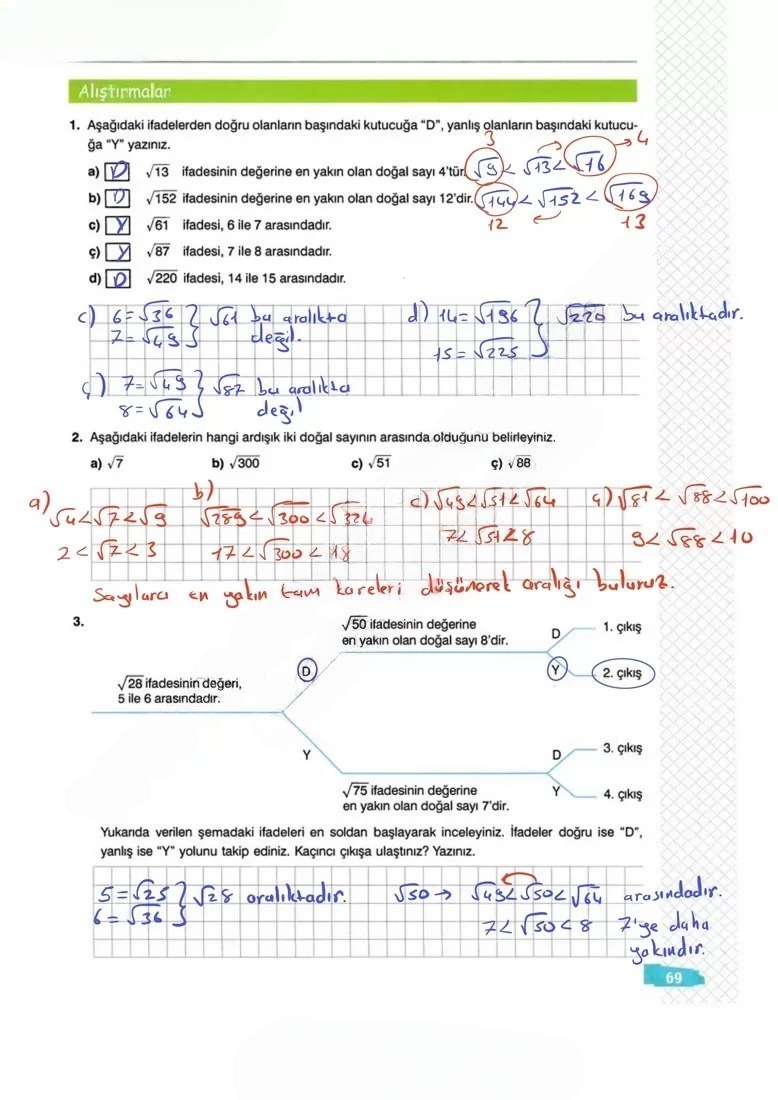 Alıştırmalar
1. Aşağıdaki ifadelerden doğru olanların başındaki kutucuğa "D", yanlış olanların başındaki kutucu-
ğa "Y" yazınız.
3 4
a) D √13 ifadesinin değerine en yakın olan doğal sayı 4'tür. √9 < √13 < √16
b) D √152 ifadesinin değerine en yakın olan doğal sayı 12'dir. √144 < √152 < √169
12 13
c) Y √61 ifadesi, 6 ile 7 arasındadır.
ç) Y √87 ifadesi, 7 ile 8 arasındadır.
d) D √220 ifadesi, 14 ile 15 arasındadır.
c) 6=√36 } √61 bu aralıkta
7=√49 değil.
d) 14=√196 } √220 bu aralıktadır.
15=√225
ç) 7=√49 } √87 bu aralıkta
8=√64 değil
2. Aşağıdaki ifadelerin hangi ardışık iki doğal sayının arasında olduğunu belirleyiniz.
a) √7 b) √300 c) √51 ç) √88
a) √4<√7<√9
2<√7<3
b) √289<√300<√324
17<√300<18
c) √49<√51<√64
7<√51<8
ç) √81<√88<√100
9<√88<10
Sayılara en yakın tam kareleri düşünerek aralığı buluruz.
3.
√28 ifadesinin değeri,
5 ile 6 arasındadır.
D
Y
√50 ifadesinin değerine
en yakın olan doğal sayı 8'dir.
D 1. çıkış
Y 2. çıkış
√75 ifadesinin değerine
en yakın olan doğal sayı 7'dir.
D 3. çıkış
Y 4. çıkış
Yukarıda verilen şemadaki ifadeleri en soldan başlayarak inceleyiniz. İfadeler doğru ise "D",
yanlış ise "Y" yolunu takip ediniz. Kaçıncı çıkışa ulaştınız? Yazınız.
5=√25 } √28 aralıktadır.
6=√36
√50 → √49<√50<√64 arasındadır.
7<√50<8 7'ye daha
yakındır.
69